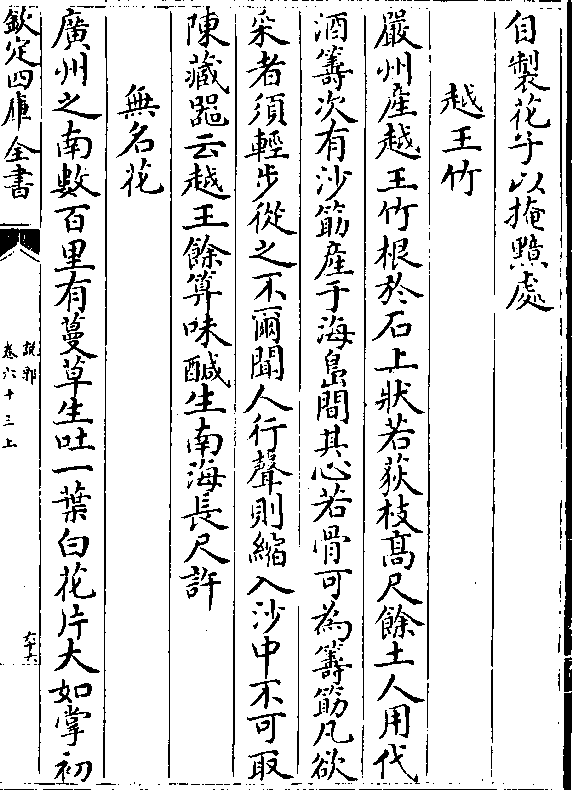 自製花子以掩㸃處
越王竹
嚴州産越王竹根於石上狀若荻枝髙尺餘土人用代
酒籌次有沙筯産于海島間其心若骨可為籌筯凡欲
采者須輕步從之不爾聞人行聲則縮入沙中不可取
陳藏噐云越王餘算味醎生南海長尺許
無名花
廣州之南數百里有蔓草生吐一葉白花片大如掌初
欽定四庫全書
說郛
卷六十三上
六十六